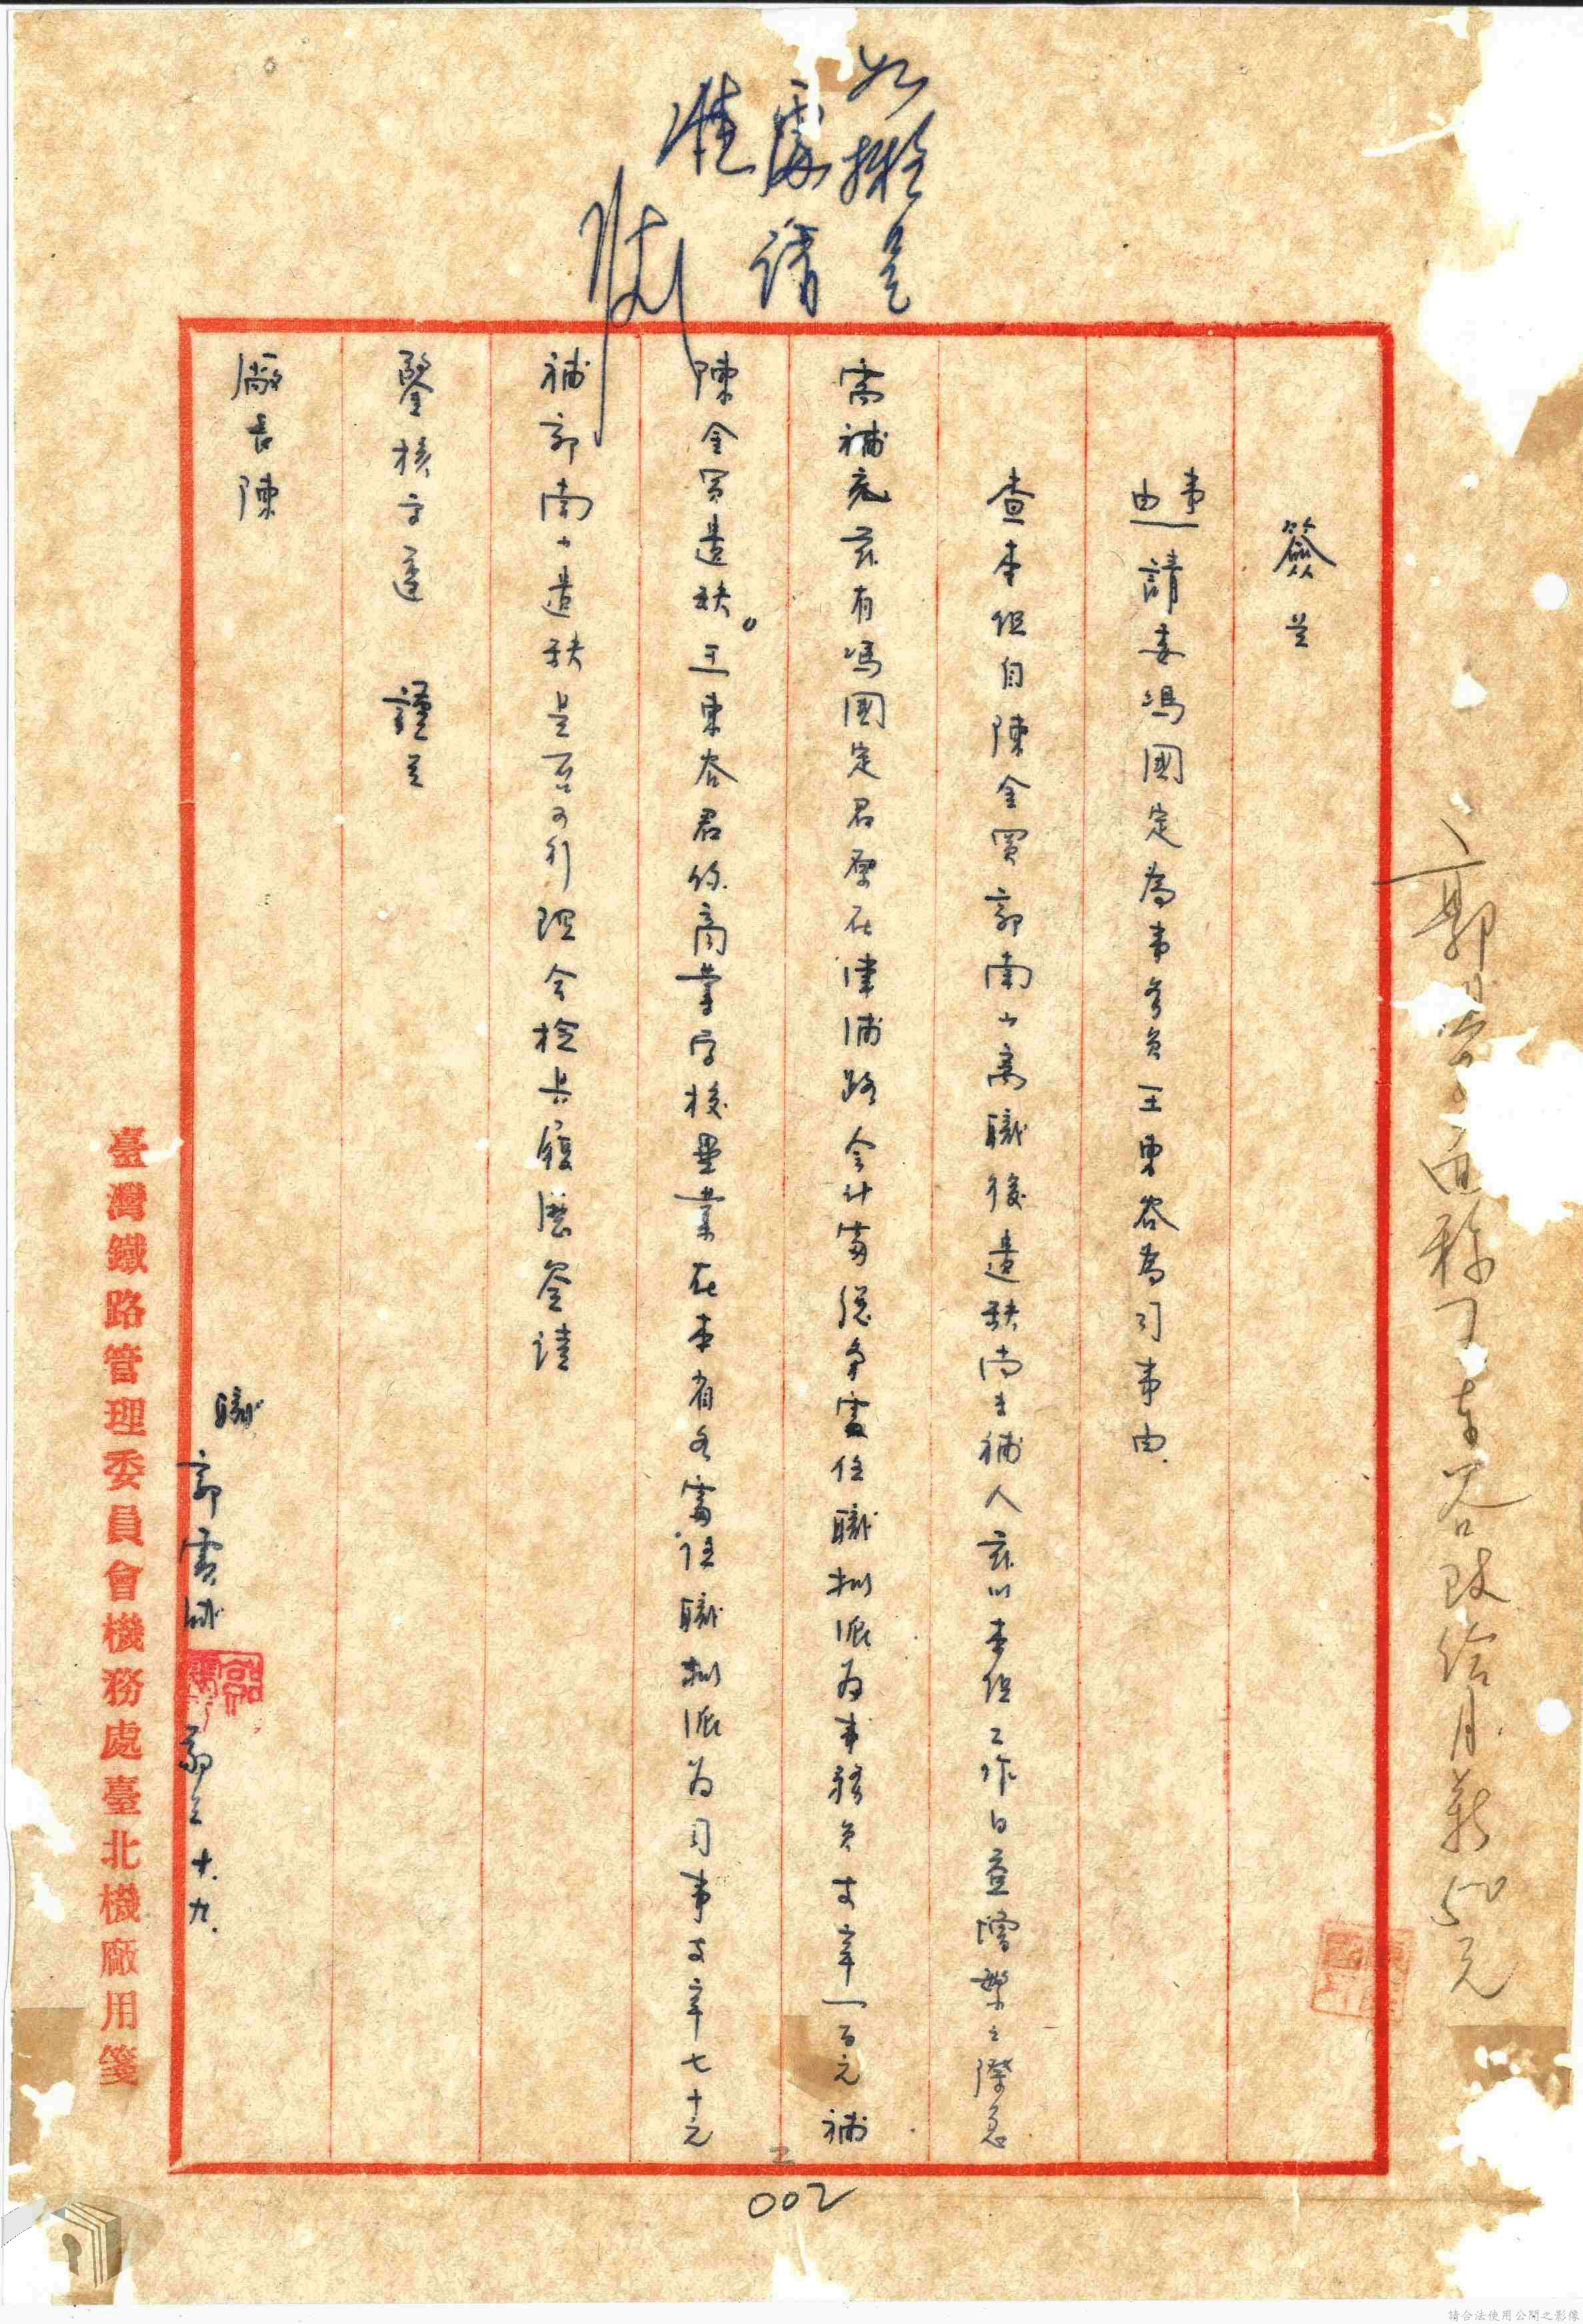 如擬呈
處請
准
簽呈
事由 請委馮國定為事務員王東容為司事由
查本組自陳金買郭南山离職後遺缺尚未補人茲以本組工作日益增繁之際急
需補充茲有馮國定君歷在津浦路會計處總務處任職擬派为事務員支薪一百元補
陳金買遺缺。王東容君係商業字校畢業在本省各處任職擬派为司事支薪七十元
補郭南山遺缺是否可行理合檢具履歷簽請
鑒核示遵 謹呈
廠長陳
職 郭
三 十九
臺灣鐵路管理委員會機務處臺北機廠用箋
面稱王東容改給月薪50元
002
請合法使用公開之影像